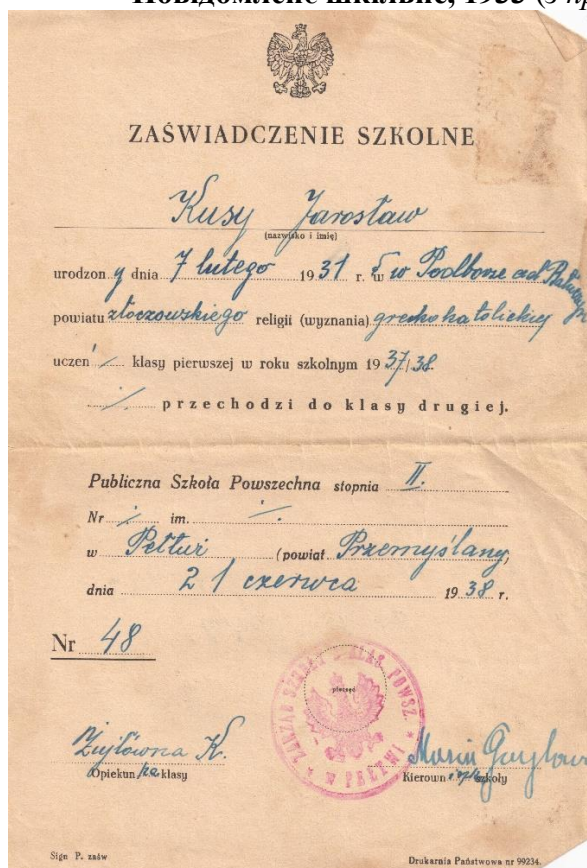 Повідомлене шкільне, 1933 (з
ZAŚWIADCZENIE SZKOLNE
Kusy Jarosław
(nazwisko i imię)
urodzon y dnia 7 lutego 1931 r. w
powiatu złoczowskiego religii (wyznania) greckokatolickiej
uczeń /. klasy pierwszej w roku szkolnym 1937/38.
/. przechodzi do klasy drugiej.
Publiczna Szkoła Powszechna stopnia II.
Nr /. im. /.
w Pełtwi (powiat Przemyślany,
dnia 21 czerwca 1938 r.
Nr 48
pieczęć
ZARZĄD SZKOŁY POWSZ. W PEŁTWI
K.
Opiekun ka klasy
Maria
Kierown szkoły
Sign P. zaśw
Drukarnia Państwowa nr 99234.